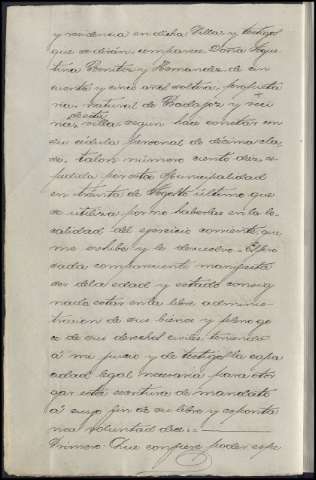 y residencia en dicha Villa, y testigos
que se dirán comparece Doña Agus-
tina Benitez y Hernandez de cin
cuenta y cinco años, soltera, propieta
ria, natural de Badajoz y veci
na de esta villa segun hace constar con
su cédula personal de décima cla
se, talon número ciento diez, ex
pedida por esta Municipalidad
en treinta de Agosto último que
se utiliza por no haberlas en la lo
calidad del egercicio corriente, que
me exhibe y le devuelvo. Espre
sada compareciente manifiesta
ser de la edad y estado consig
nado estar en la libre adminis-
tracion de sus bienes y pleno go
ce de sus derechos civiles, teniendo
á mi juicio y de testigos la capa
cidad legal necesaria para otor
gar esta escritura de mandato
á cuyo fin de su libre y espontá
nea voluntad dice:
Primero: Que confiere poder espe